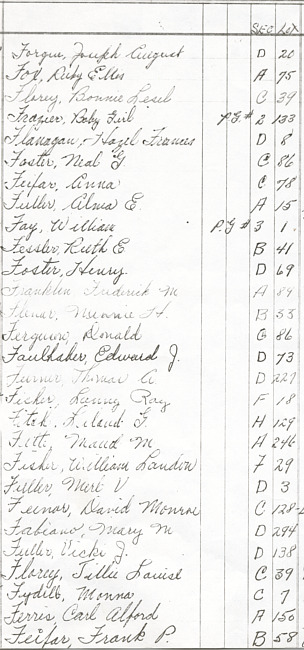 SEC LOT
Forgue, Joseph August D 20
Fox, Ruby Ellen A 75
Florey, Bonnie Lesel C 39
Frazier, Baby Girl P.G. # 2 133
Flanagan, Hazel Frances D 8
Foster, Neal G C 86
Feifar, Anna C 78
Fuller, Alma E. A 15
Fay, William P.G # 3 1
Fessler, Ruth E B 41
Foster, Henry D 69
Franklin Frederick M A 89
Minnie H. B 53
Donald C 86
Faulhaber, Edward J. D 73
Thomas A. D 227
Fisher, Lanny Ray F 18
Fitch, Leland G. H 129
Maud M A 246
Fisher, William Landon F 29
Fuller, Merl V D 3
David Monroe C 128
Fabiano, Mary M D 294
Fuller, Vicki J. D 138
Florey, Tillie Louise C 39
Monna C 7
Ferris, Carl Alford A 150
Feifar, Frank P. B 58